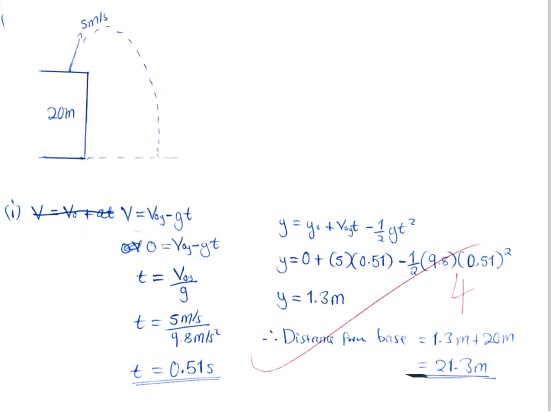 5m/s
20m
(i) V = V₀ + at V = V₀y - gt
0 = V₀y - gt
t = V₀y/g
t = 5m/s / 9.8m/s²
t = 0.51s
y = y₀ + V₀yt - ½gt²
y = 0 + (5)(0.51) - ½(9.8)(0.51)²
y = 1.3m
4
∴ Distance from base = 1.3m + 20m
= 21.3m